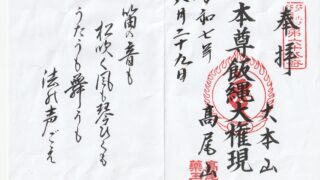 奉拝
大本山
本尊飯縄大権現
高尾山
令和七年
八月二十九日
笛の音も
松吹く風も琴ひくも
うたうも舞うも
法の声ごえ